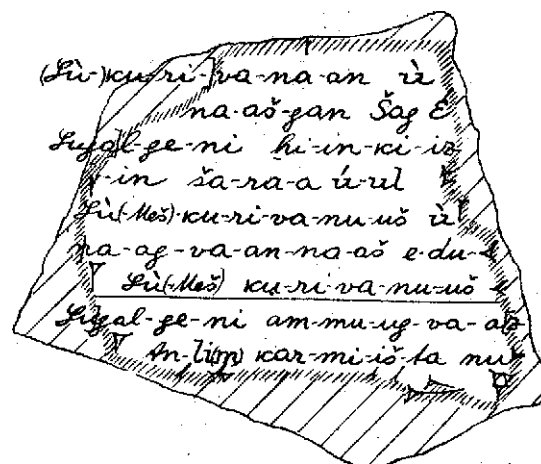 (Lù-)ku-ri-va-na-an ù
na-aš-gan Šag É
Lugal-ge-ni hi-in-ki-iz
-in ša-ra-a ú-ul
Lù(Meš)-ku-ri-va-nu-uš ù
na-ag-va-an-na-aš e-du-
Lù(Meš) ku-ri-va-nu-uš
Lugal-ge-ni am-mu-ug-va-an
An-lim) kar-mi-iš-ta nu-